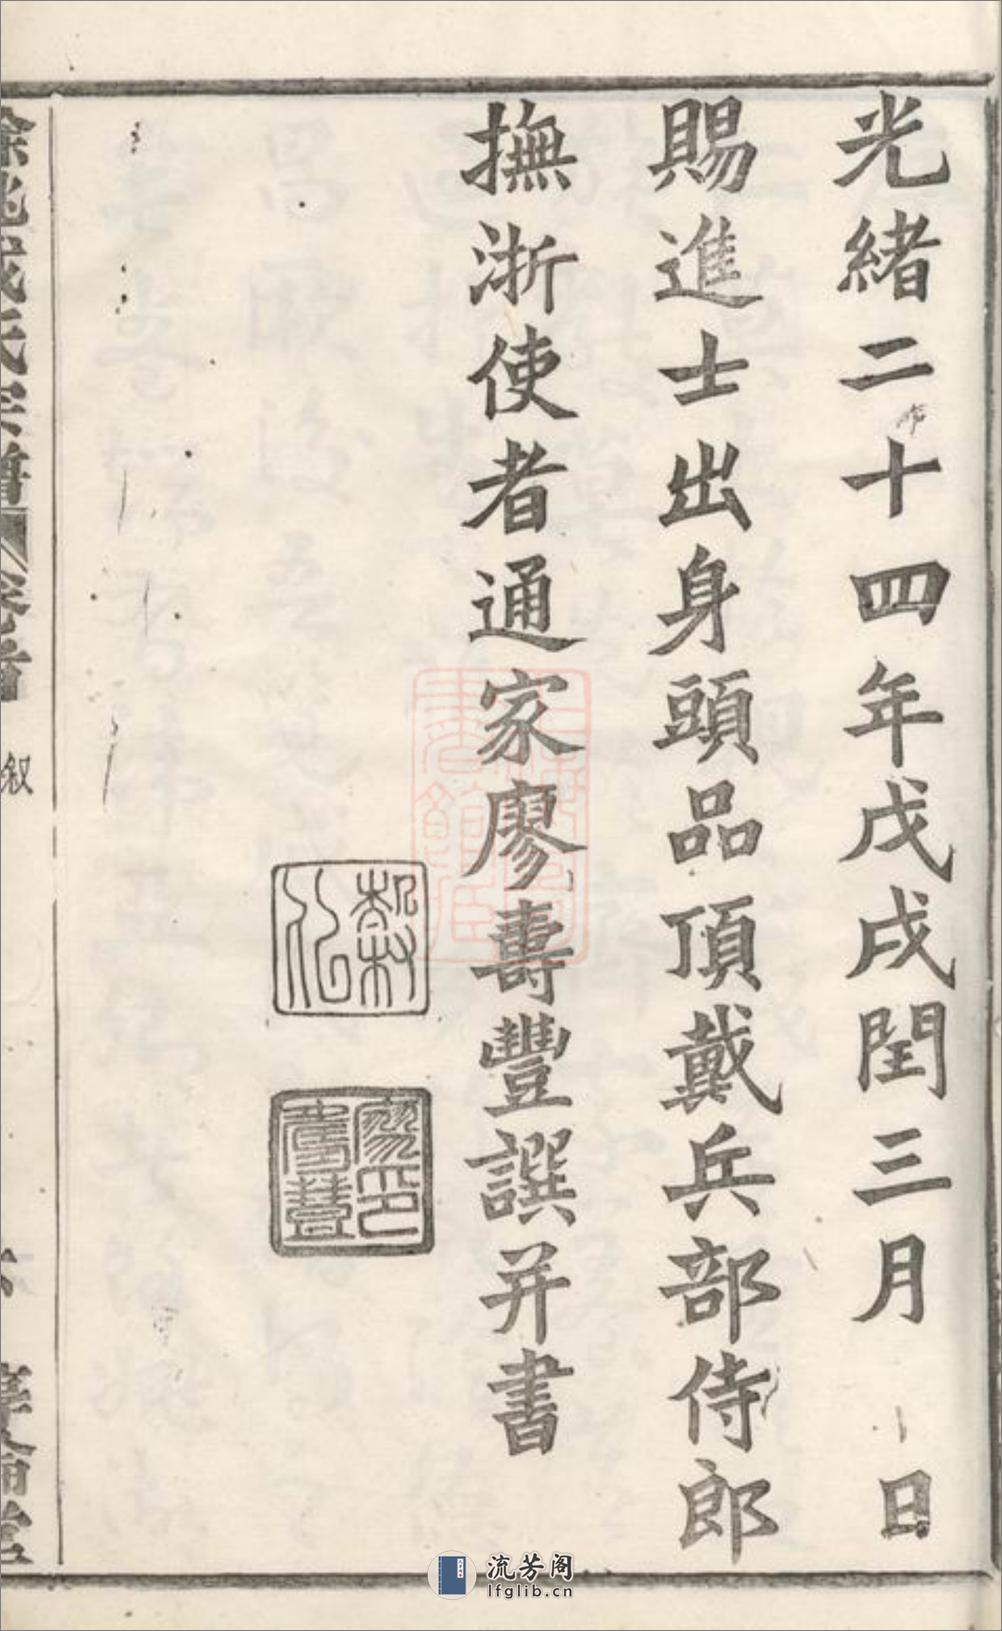 光緒二十四年戊戌閏三月 日
賜進士出身頭品頂戴兵部侍郎
撫浙使者通家廖壽豐譔并書
穀似
廖印壽豐
氏宗譜
卷首
叙
流芳阁
lfglib.cn